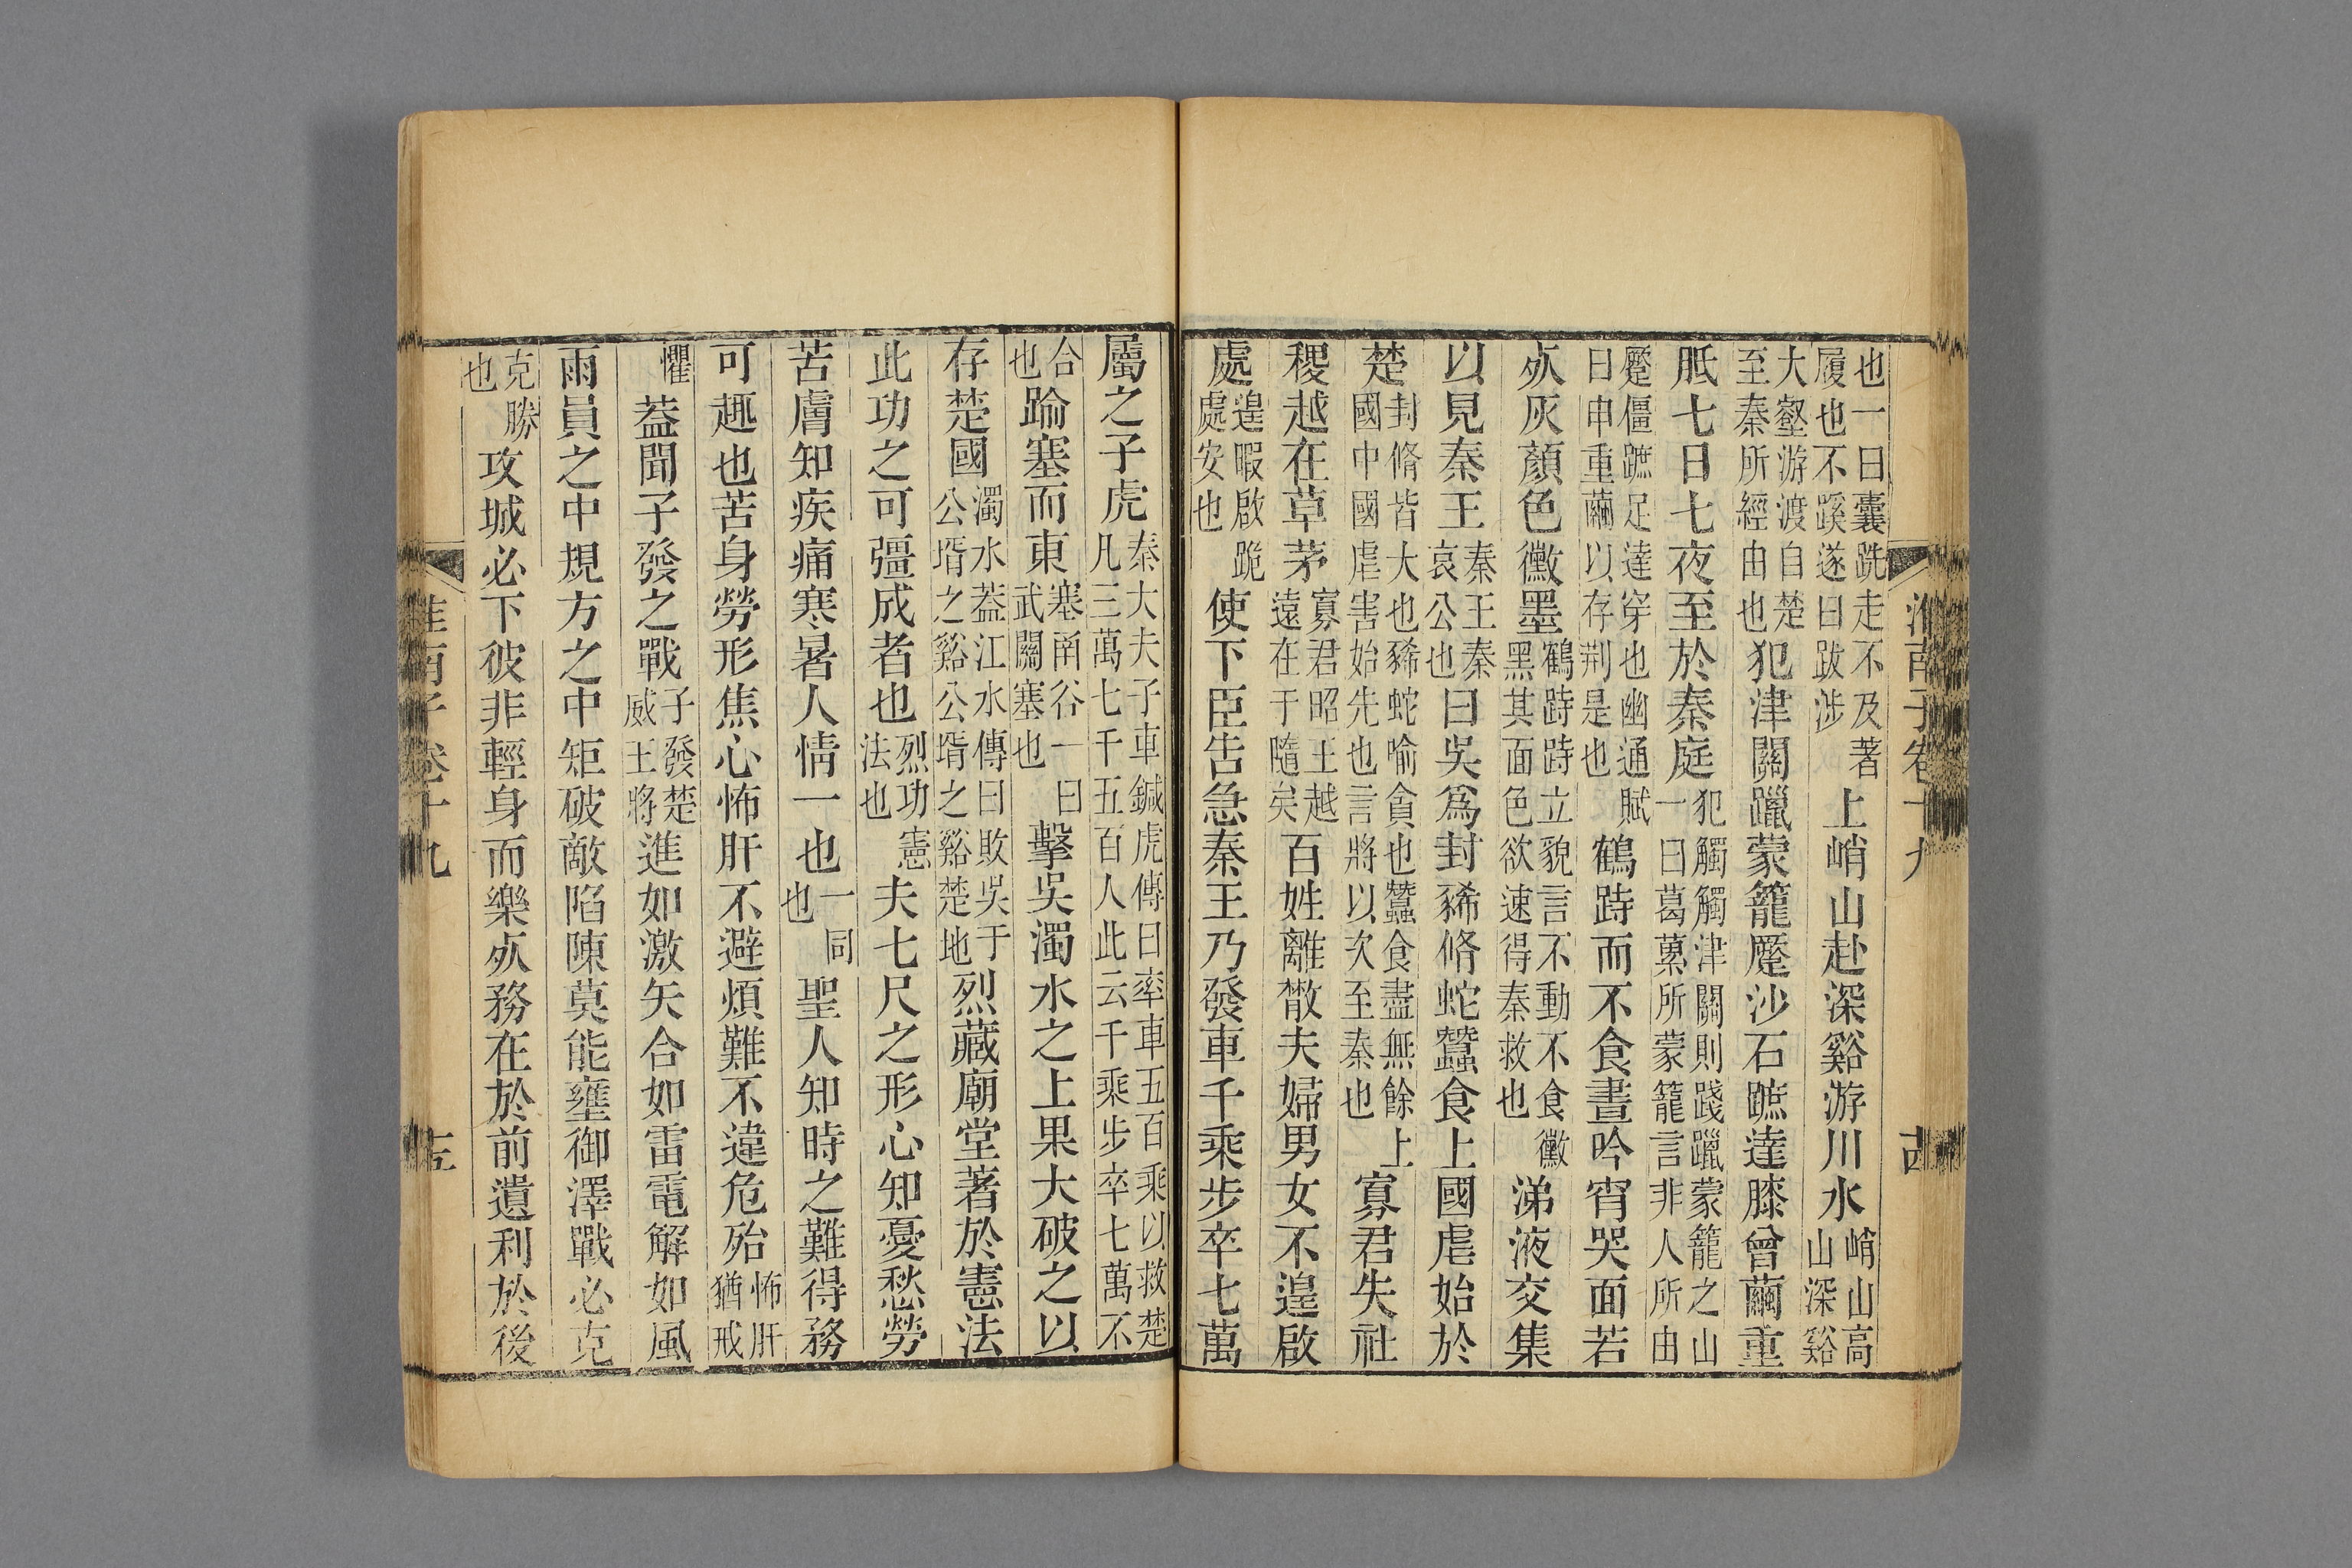 淮南子卷十九
也一曰囊跣走不及著履也不蹊遂曰跋涉上峭山赴深谿游川水峭山高山深谿
大壑游渡自楚至秦所經由也犯津關躐蒙籠蹷沙石蹠達膝曾繭重
胝七日七夜至於秦庭犯觸觸津關則踐躐蒙籠之山一曰葛蔂所蒙籠言非人所由
蹷僵蹠足達穿也幽通賦曰申重繭以存荆是也鶴跱而不食晝吟宵哭面若
死灰顏色黴墨鶴跱跱立貌言不動不食黴黑其面色欲速得秦救也涕液交集
以見秦王秦王秦哀公也曰吳爲封豨脩蛇蠶食上國虐始於
楚封脩皆大也豨蛇喻貪也蠶食盡無餘上國中國虐害始先也言將以次至秦也寡君失社
稷越在草茅寡君昭王越遠在于隨矣百姓離散夫婦男女不遑啟
處遑暇啟跪處處安也使下臣告急秦王乃發車千乘步卒七萬
屬之子虎秦大夫子車鍼虎傳曰率車五百乘以救楚凡三萬七千五百人此云千乘步卒七萬不
合也踰塞而東塞南谷一曰武關塞也擊吳濁水之上果大破之以
存楚國濁水葢江水傳曰敗吳于公壻之谿公壻之谿楚地烈藏廟堂著於憲法
此功之可彊成者也烈功憲法也夫七尺之形心知憂愁勞
苦膚知疾痛寒暑人情一也一同也聖人知時之難得務
可趣也苦身勞形焦心怖肝不避煩難不違危殆怖肝猶戒
懼葢聞子發之戰子發楚威王將進如激矢合如雷電解如風
雨員之中規方之中矩破敵陷陳莫能壅御澤戰必克
克勝也攻城必下彼非輕身而樂死務在於前遺利於後
淮南子卷十九 十五